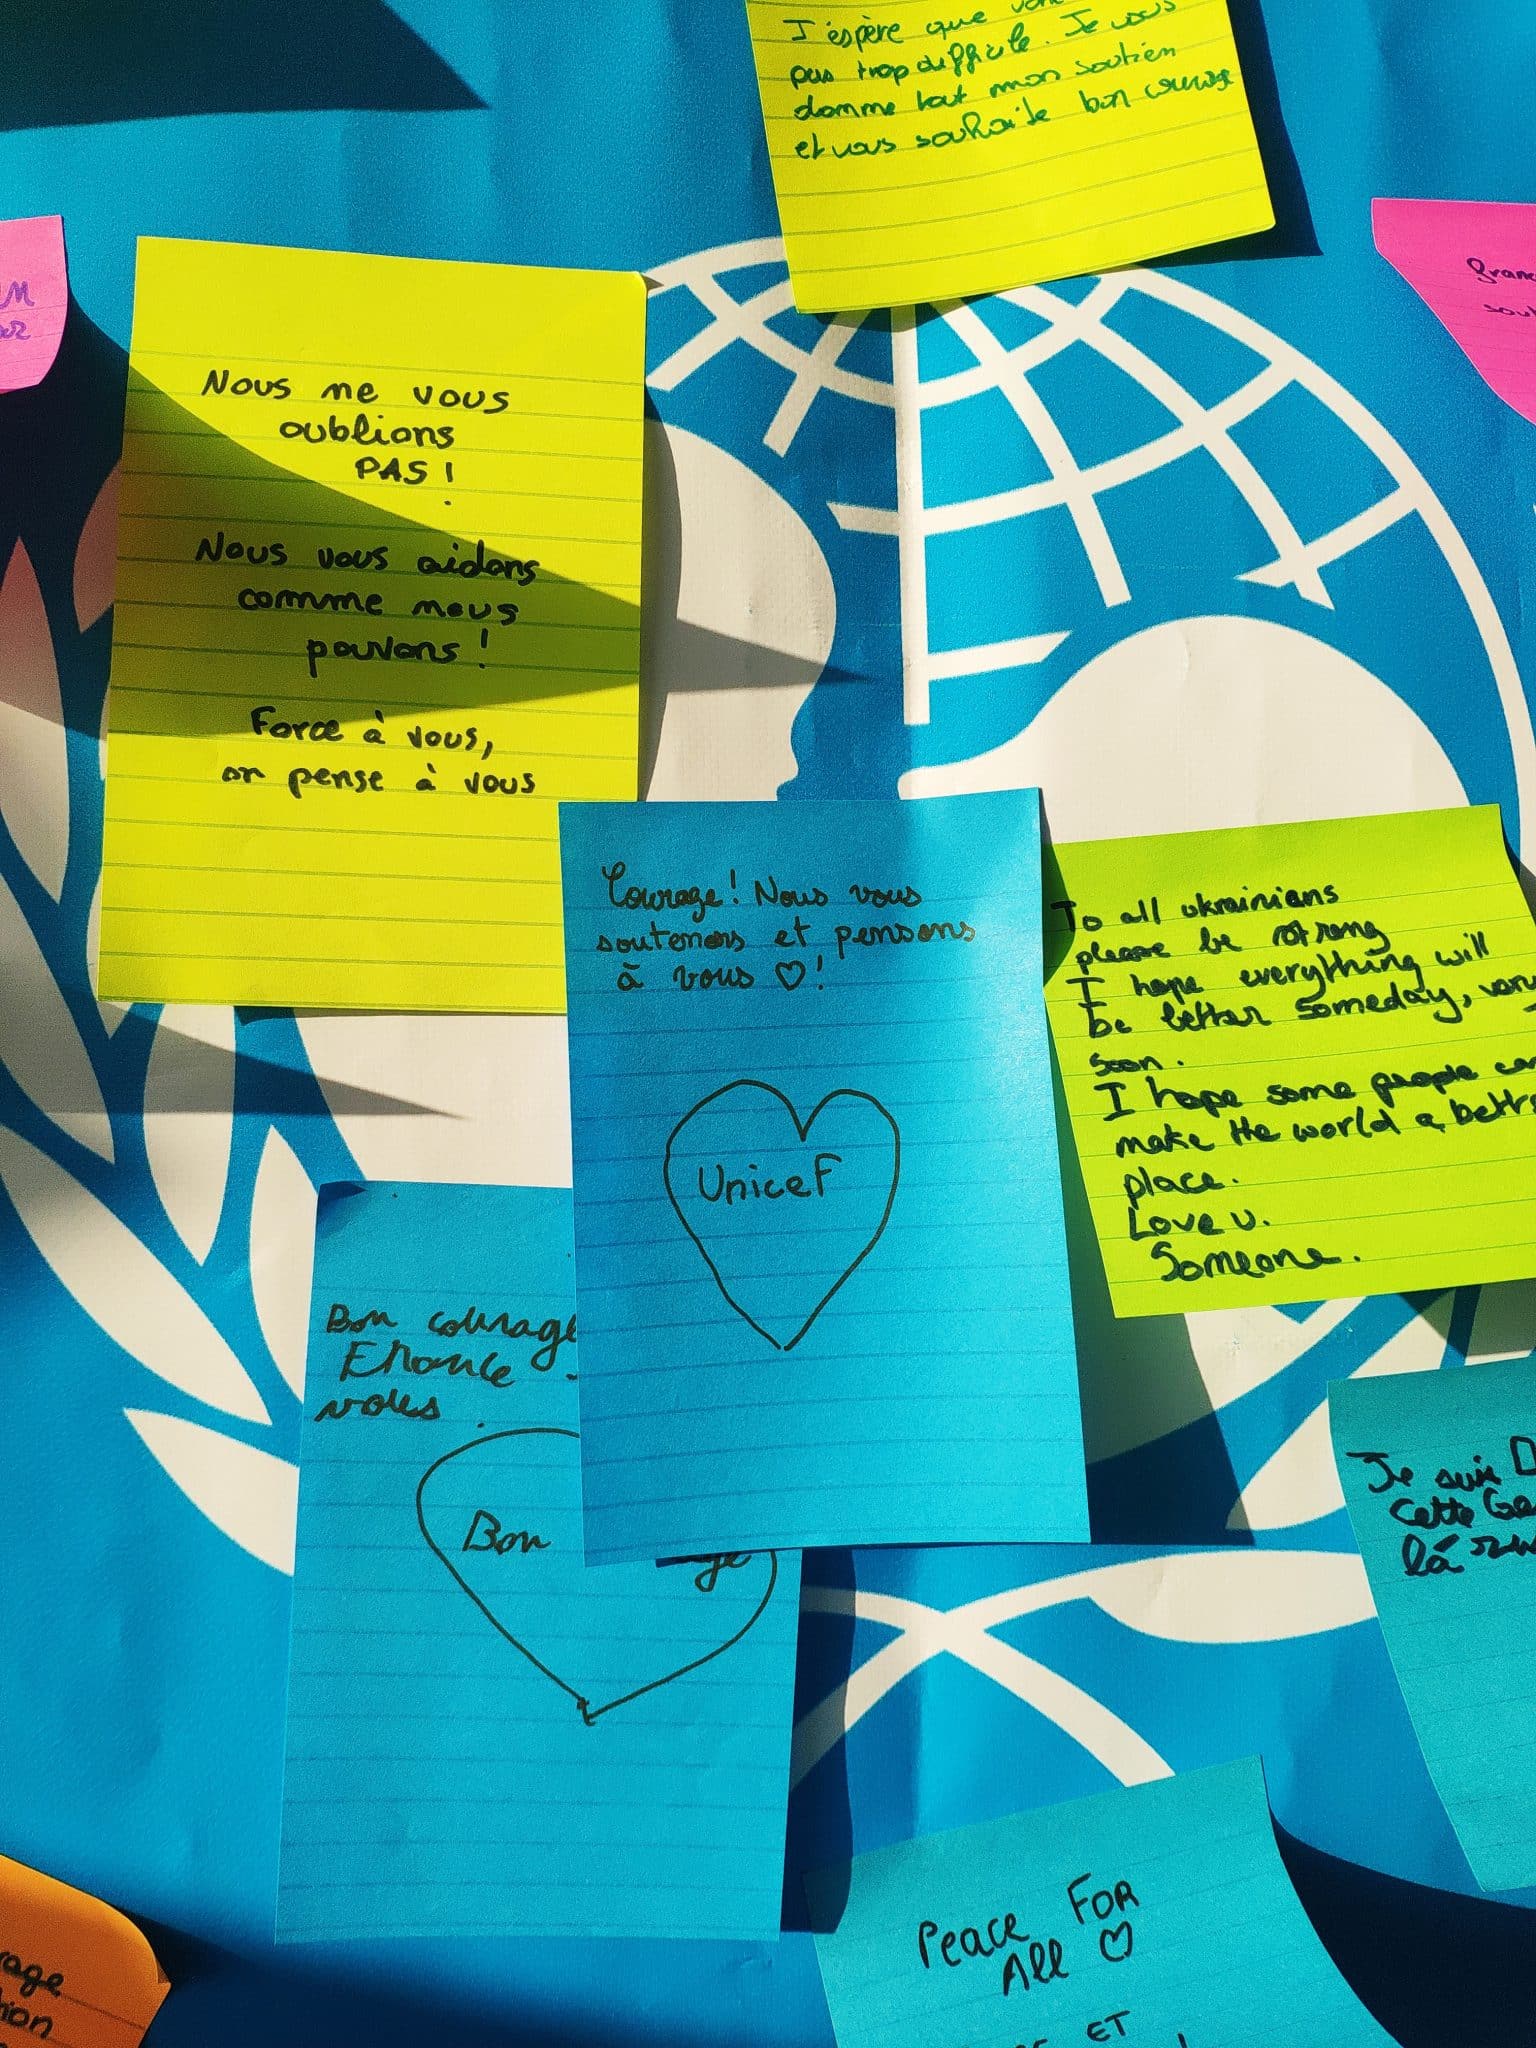 J'espère que
pas trop difficile. Je vous
donne tout mon soutien
et vous souhaite bon courage
Nous ne vous
oublions
PAS !
Nous vous aidons
comme nous
pouvons !
Force à vous,
on pense à vous
Courage ! Nous vous
soutenons et pensons
à vous ♡ !
Unicef
To all ukrainians
please be strong
I hope everything will
be better someday, very
soon.
I hope some people can
make the world a better
place.
Love u.
Someone.
Bon courage
vous.
Bon
Je suis
cette
là
Peace FOR
All ♡
ET